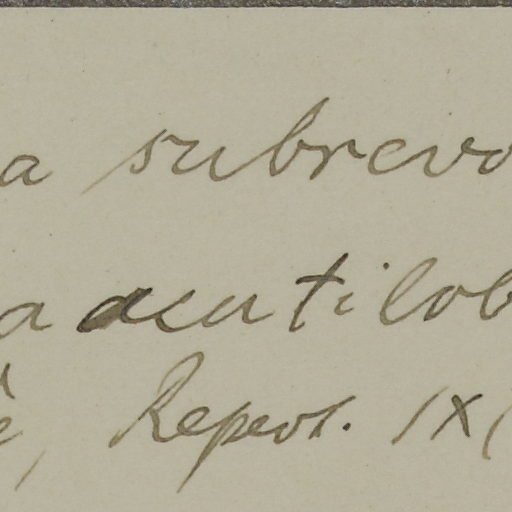 a subrevo
a acutilob
è, Repert. IX (